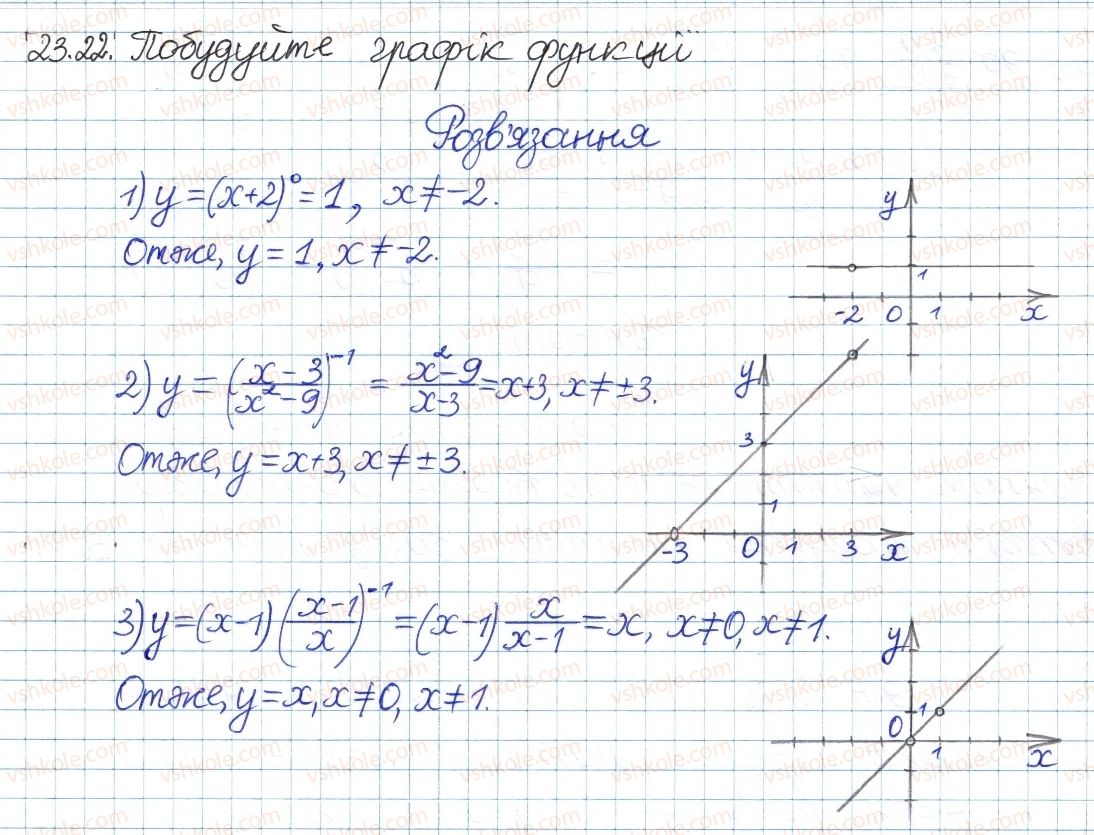 23.22. Побудуйте графік функції
Розв'язання
1) y = (x+2)⁰ = 1, x ≠ -2.
Отже, y = 1, x ≠ -2.
y
1
-2 0 1 x
2) y = ((x-3)/(x²-9))⁻¹ = (x²-9)/(x-3) = x+3, x ≠ ±3.
Отже, y = x+3, x ≠ ±3.
y
3
1
-3 0 1 3 x
3) y = (x-1)((x-1)/x)⁻¹ = (x-1) x/(x-1) = x, x ≠ 0, x ≠ 1.
Отже, y = x, x ≠ 0, x ≠ 1.
y
1
0
1 x
vshkole.com